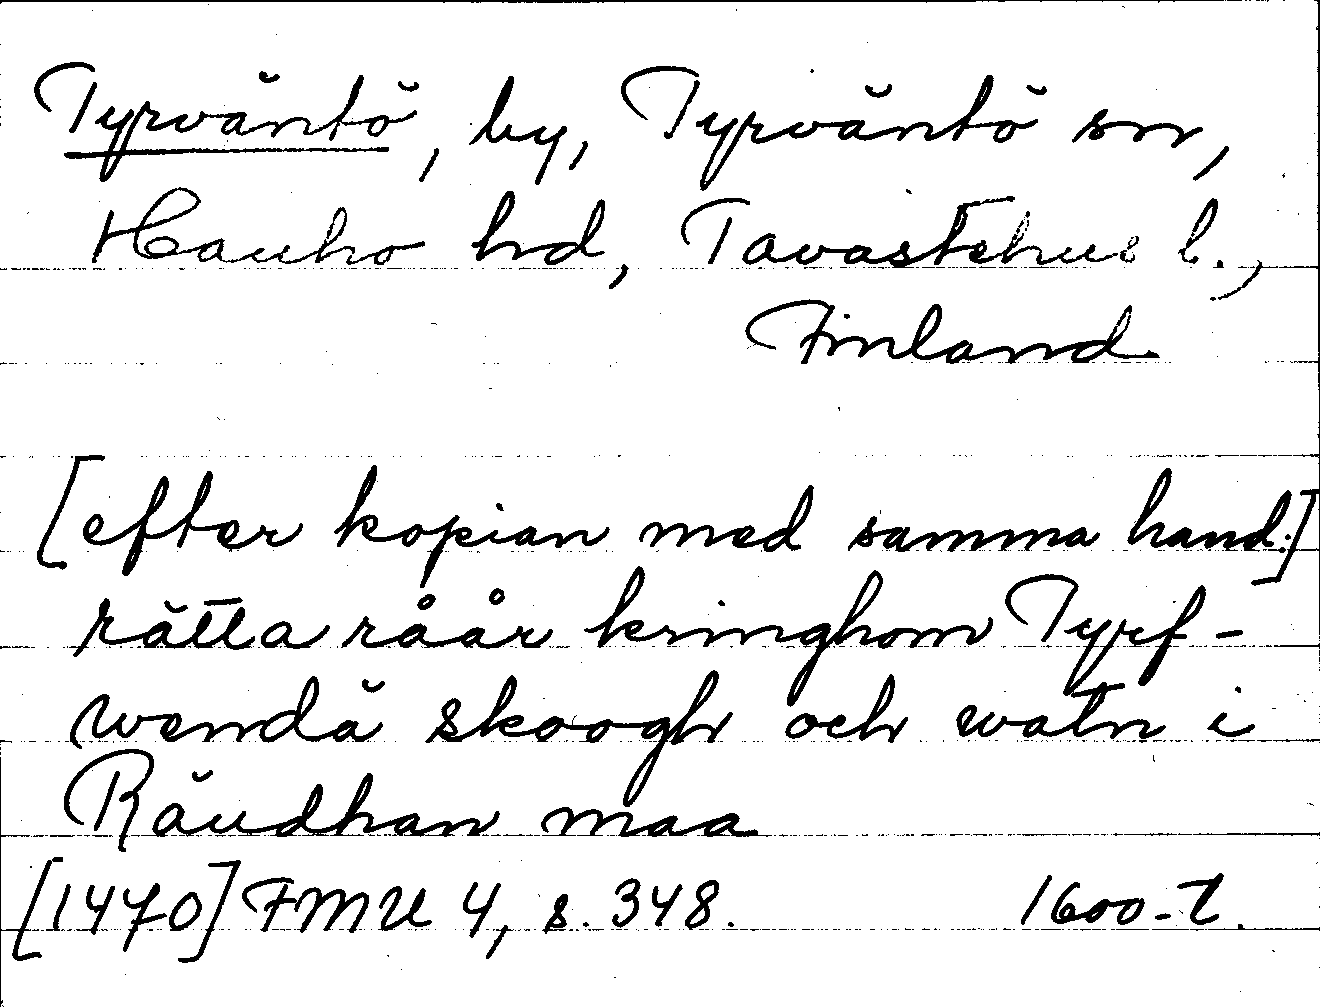 Tyrväntö, by, Tyrväntö sn,
Hauho hd, Tavastehus l.,
Finland
[efter kopian med samma hand:]
rätta råår kringhom Tyrf-
wendä skoogh och watn i
Räudhan maa
[1470] FMU 4, s. 348. 1600-t.